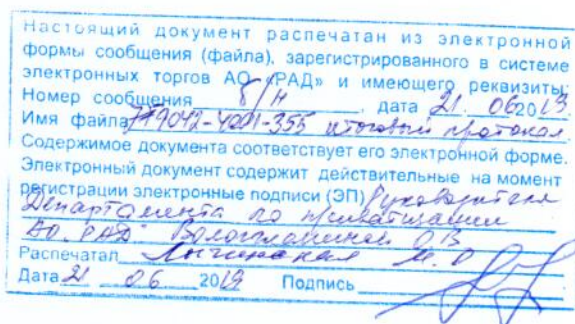 Настоящий документ распечатан из электронной
формы сообщения (файла), зарегистрированного в системе
электронных торгов АО «РАД» и имеющего реквизиты:
Номер сообщения б/н дата 21. 06 2019.
Имя файла 9042-4001-355 итоговый протокол
Содержимое документа соответствует его электронной форме.
Электронный документ содержит действительные на момент
регистрации электронные подписи (ЭП) Руководителя
Департамента по приватизации
АО "РАД" О.В
Распечатал М.О
Дата 21 06 2019 Подпись